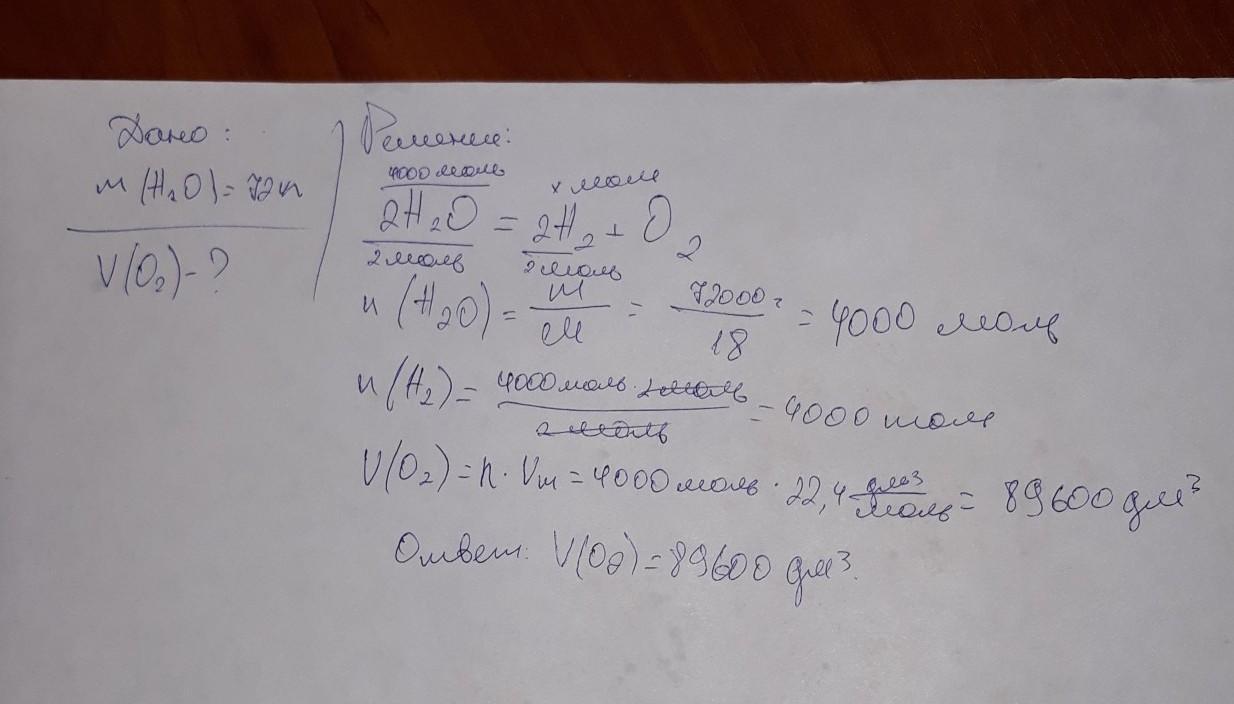 Дано:
m(H₂O)=72кг
V(O₂)-?
Решение:
4000 моль
x моль
2H₂O = 2H₂ + O₂
2 моль
2 моль
n(H₂O) = m/M = 72000г/18 = 4000 моль
n(H₂) = 4000 моль · 2 моль/2 моль = 4000 моль
V(O₂) = n · Vm = 4000 моль · 22,4 дм³/моль = 89600 дм³
Ответ: V(O₂)=89600 дм³.